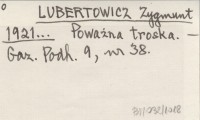 LUBERTOWICZ Zygmunt
1921... Poważna troska. —
Gaz. Podh. 9, nr 38.